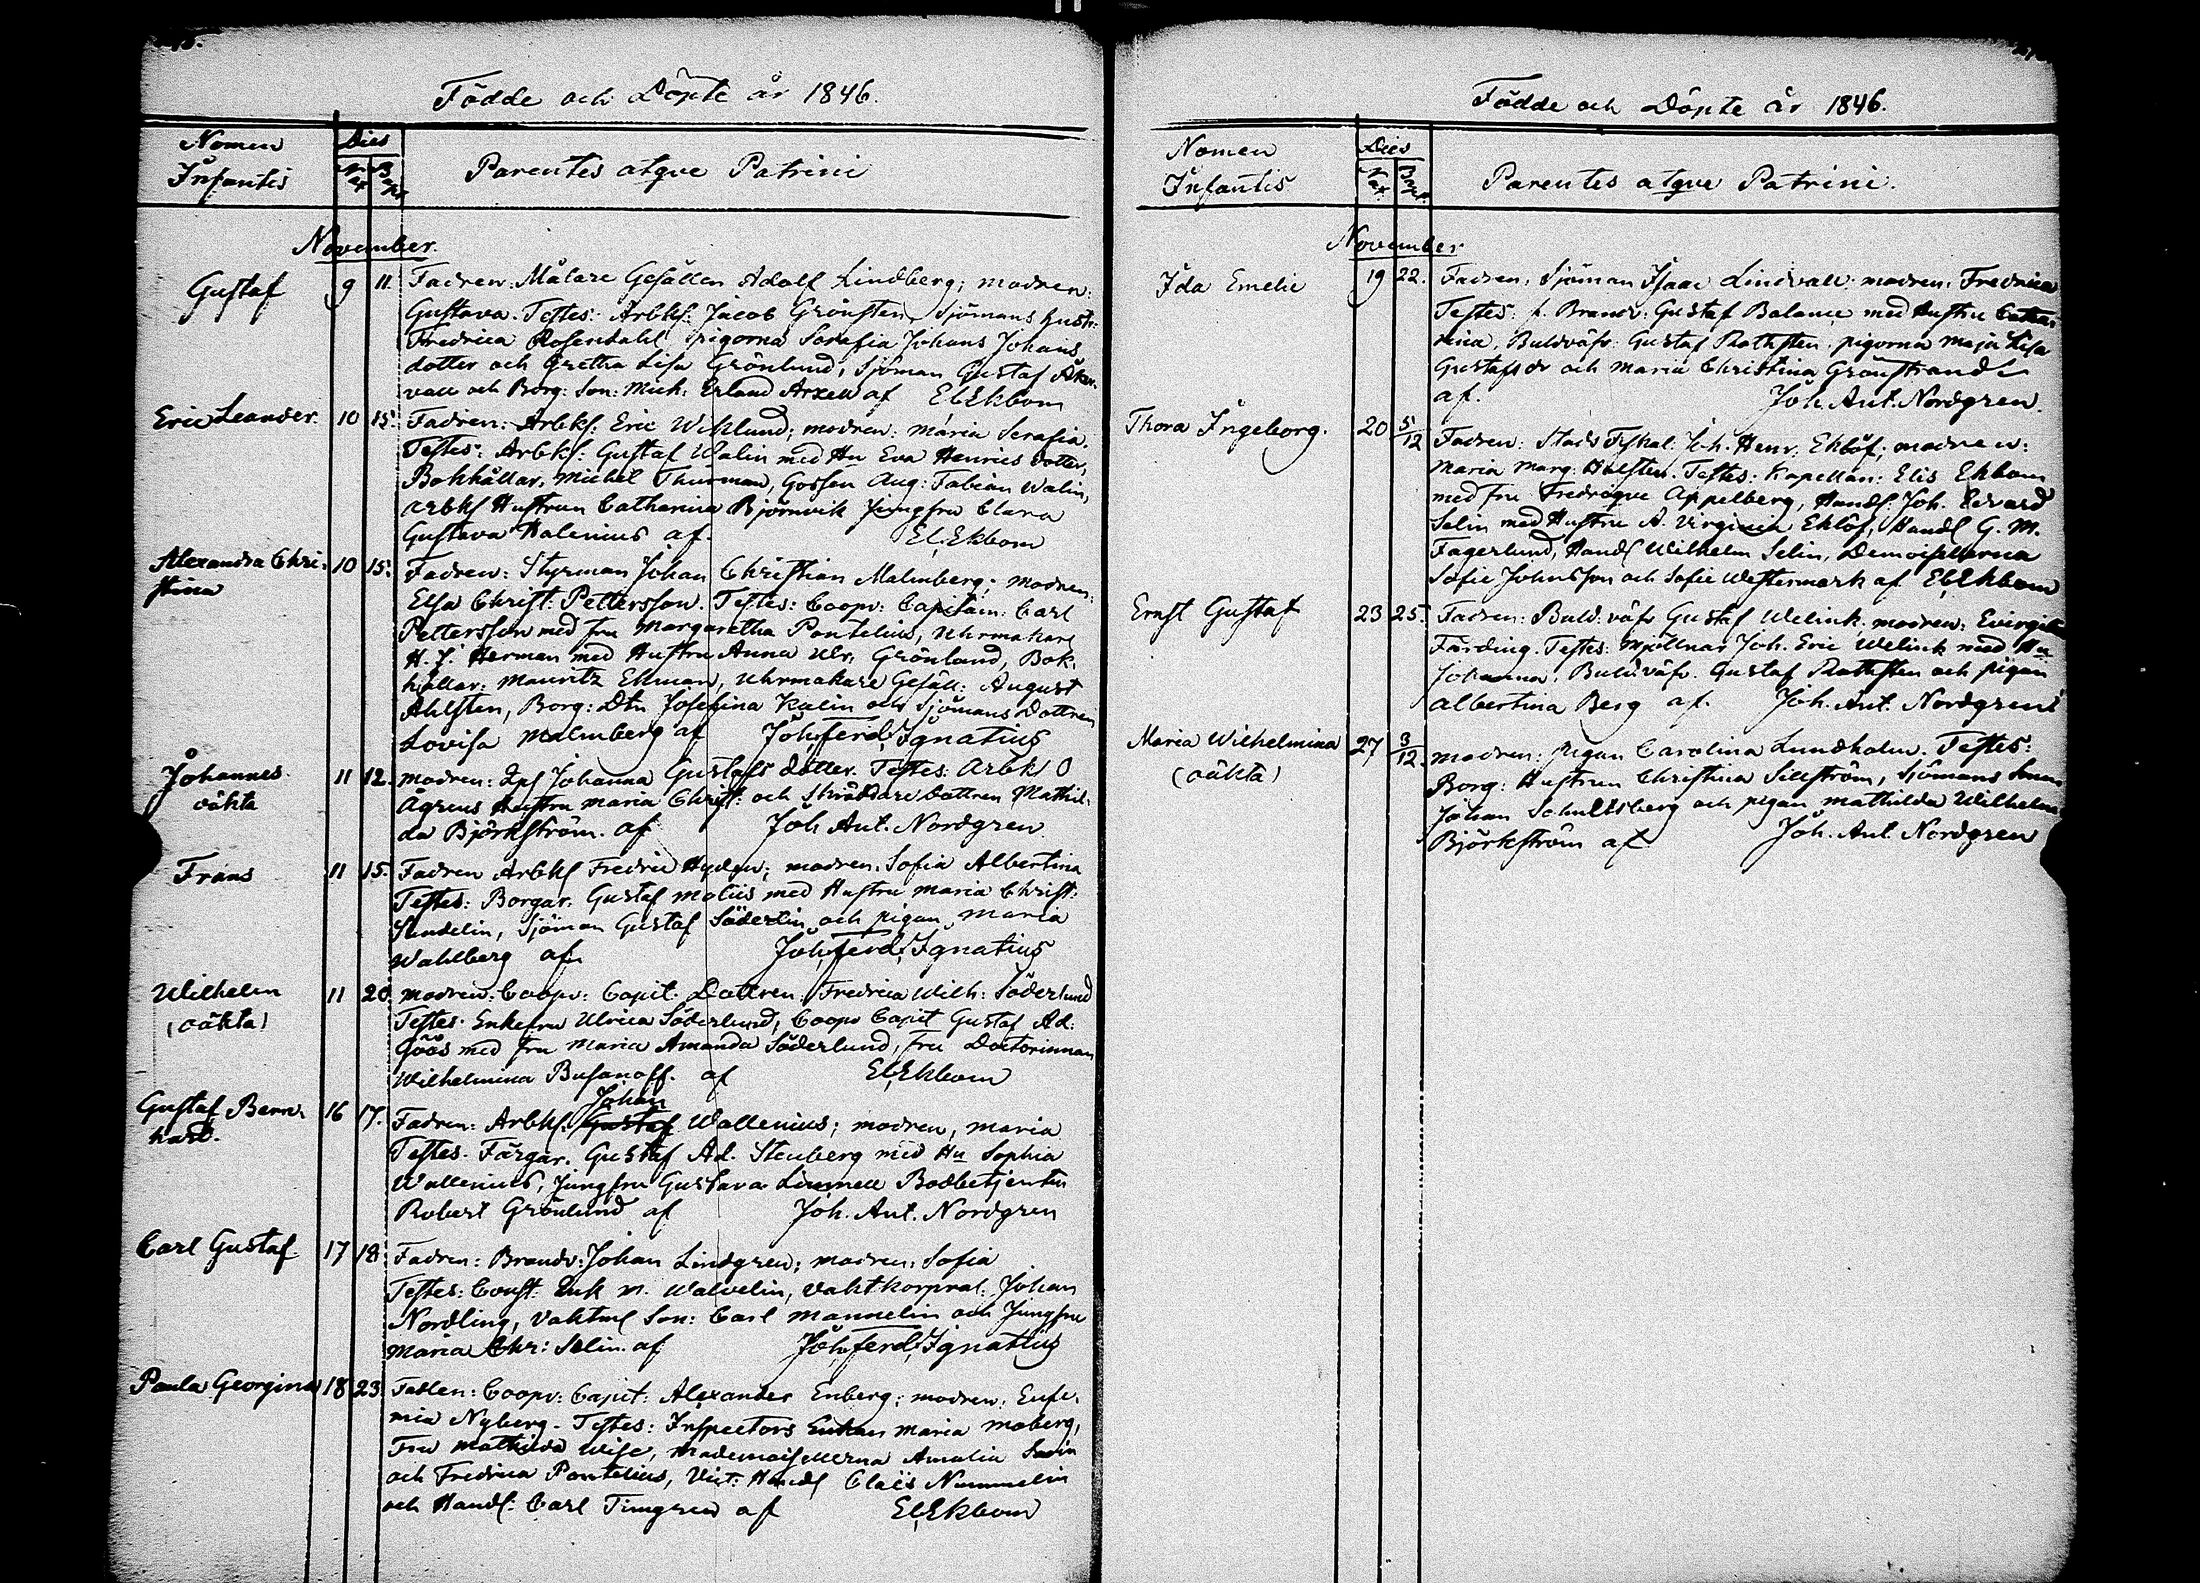 Födde och Döpte år 1846.
Nomen Infantis
Dies
Nat
Bapt
Parentes atque Patrini
November.
Gustaf 9 11. Fadren: Målare Gesällen Adolf Lindberg; modren:
Gustava. Testes: Arbks: Jacob Grönsten, Sjömans hustr:
Fredrica Rosendahl pigorna Serafia Johans Johans
dotter och Gretha Lisa Grönlund, Sjöman Gustaf Åker-
vall och Borg: Son: Mich: Erland Arzell af El. Ekbom
Eric Leander. 10 15. Fadren: Arbks: Eric Wiklund; modren: Maria Serafia.
Testes: Arbks: Gustaf Walin med Hu Eva Henrics dotter,
Bokhållar. Michel Thurman, Gossen Aug: Fabian Walin,
Arbks Hustrun Catharina Björnvik Jungfru Clara
Gustava Halenius af. El. Ekbom
Alexandra Chri- 10 15. Fadren: Styrman Johan Christian Malmberg; modren:
stina Elsa Christ: Pettersson. Testes: Coopv: Capitain: Carl
Pettersson med fru Margaretha Pontelius, Uhrmakare
H. J. Herman med Hustru Anna Ulr: Grönlund, Bok-
hållar: Mauritz Ekman, Uhrmakare Gesäll: August
Ahlsten, Borg: Dtn Josefina Kalin och Sjömans Dottren
Lovisa Malmberg af Joh. Ferd. Ignatius
Johannes 11 12. modren: Johanna Gustafs dotter. Testes: Arbks O
oäkta Ågrens Hustru Maria Christ: och Skräddare Dottren Mathil-
da Björkström. af Joh. Ant. Nordgren
Frans 11 15. Fadren Arbks Fredric Hydén; modren: Sofia Albertina
Testes: Borgar. Gustaf Matiis med Hustru Maria Christ:
Sundelin, Sjöman Gustaf Söderlin och pigan Maria
Wahlberg af Joh. Ferd. Ignatius
Wilhelm 11 20. modren: Coopv: Capit: Dottren: Fredrica Wilh: Söderlund
(oäkta) Testes: Enkefru Ulrica Söderlund, Coopv Capit Gustaf Ad:
Göös med fru Maria Amanda Söderlund, fru Doctorinnan
Wilhelmina Busanoff. af El. Ekbom
Johan
Gustaf Bern- 16 17. Fadren: Arbks: Gustaf Wallenius; modren, Maria
hard. Testes. Färgar. Gustaf Ad. Stenberg med Hu Sophia
Wallenius, Jungfru Gustava Linnell Bodbetjenten
Robert Grönlund af Joh. Ant. Nordgren
Carl Gustaf 17 18. Fadren: Brandv: Johan Lindgren; modren: Sofia
Testes: Const: Enk M. Walvelin, Vaktkorpral: Johan
Nordling, Vaktml Son: Carl Mannelin och Jungfru
Maria Chr: Selin. af Joh. Ferd. Ignatius
Paula Georgina 18 23. Fadren: Coopv: Capit: Alexander Enberg; modren: Eufe-
mia Nyberg. Testes: Inspectors Enkan Maria Moberg,
Fru Mathilda Wise, Mademoisellerna Amalia
och Fredrica Pontelius, Vict: Handl Claës Nummelin
och Handl: Carl Timgren af El. Ekbom
Födde och Döpte år 1846.
Nomen Infantis
Dies
Nat
Bapt
Parentes atque Patrini.
November
Ida Emelie 19 22. Fadren: Sjöman Isaac Lindvall; modren: Fredrica
Testes: Brandv: Gustaf Balance med Hustru Catha-
rina, Buldväfv: Gustaf Rothsten, pigorna Maja Lisa
Gustafs dr och Maria Christina Grönstrand
af. Joh. Ant. Nordgren.
Thora Ingeborg. 20 5/12 Fadren: Stads Fiskal: Joh. Henr. Eklöf; modren:
Maria Marg: Holsten. Testes: Kapellan: Elis Ekbom
med fru Fredrique Appelberg, Handl: Joh. Edvard
Selin med Hustru A. Virginia Eklöf, Handl G. M.
Fagerlund, Handl Wilhelm Selin, Demoisellerna
Sofie Johnsson och Sofie Westermark af El. Ekbom
Ernst Gustaf 23 25. Fadren: Buld: väfv Gustaf Welink; modren:
Färding. Testes: Mjöllnar Joh. Eric Welink med Hu
Johanna. Buldväfv. Gustaf Rothsten och pigan
Albertina Berg af. Joh. Ant. Nordgren
Maria Wilhelmina 27 3/12. modren: pigan Carolina Lundholm. Testes:
(oäkta) Borg: Hustrun Christina Sillström, Sjömans Sonen
Johan Schultsberg och pigan Mathilda Wilhelmina
Björkström af Joh. Ant. Nordgren